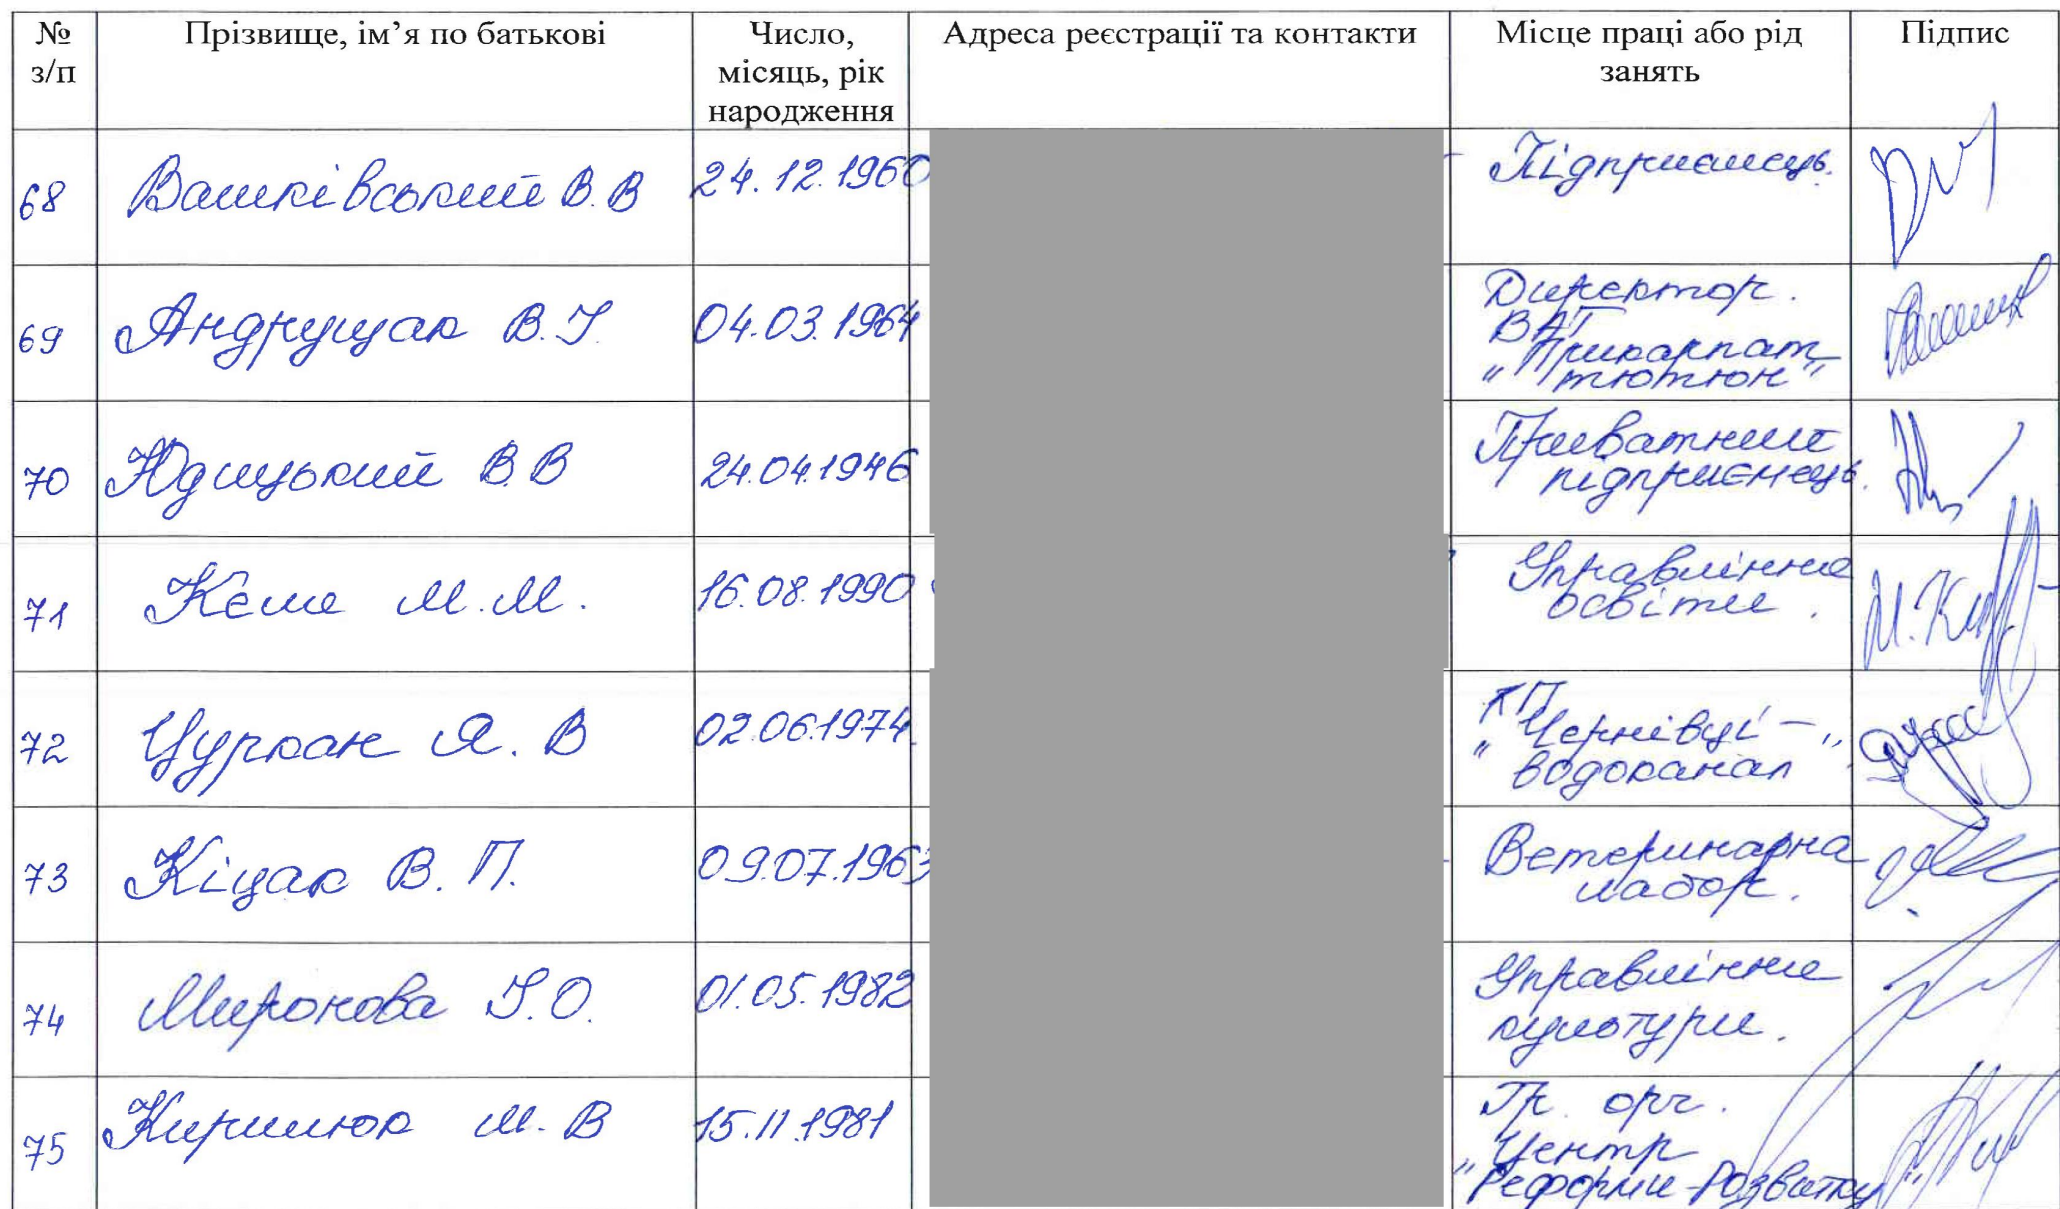 № з/п Прізвище, ім’я по батькові Число, місяць, рік народження Адреса реєстрації та контакти Місце праці або рід занять Підпис
68 Вашківський В.В 24.12.1960 Підприємець.
69 Андрущак В.І 04.03.1964 Директор.
ВАТ
"Прикарпат
тютюн"
70 Юдицький В.В 24.04.1946 Приватний
підприємець.
71 Кеше М.М. 16.08.1990 Управління
освіти.
72 Цуркан Я.В 02.06.1974 КП
"Чернівці-
водоканал"
73 Кіцак В.П. 09.07.1963 Ветеринарна
лабор.
74 Миронова І.О. 01.05.1982 Управління
культури.
75 Кирилюк М.В 15.11.1981 Гр. орг.
Центр
"Реформи-Розвитку"